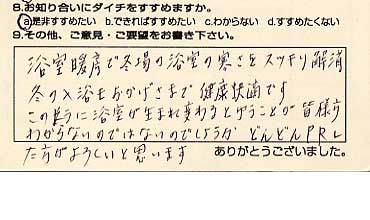 8.お知り合いにダイチをすすめますか。
a.是非すすめたい b.できればすすめたい c.わからない d.すすめたくない
9.その他、ご意見・ご要望をお書き下さい。
浴室暖房で冬場の浴室の寒さをスッキリ解消
冬の入浴もおかげさまで健康快適です
この様に浴室が生まれ変わるとゆうことが皆様方
わからないのではないのでしょうか どんどんPRし
た方がよろしいと思います
ありがとうございました。